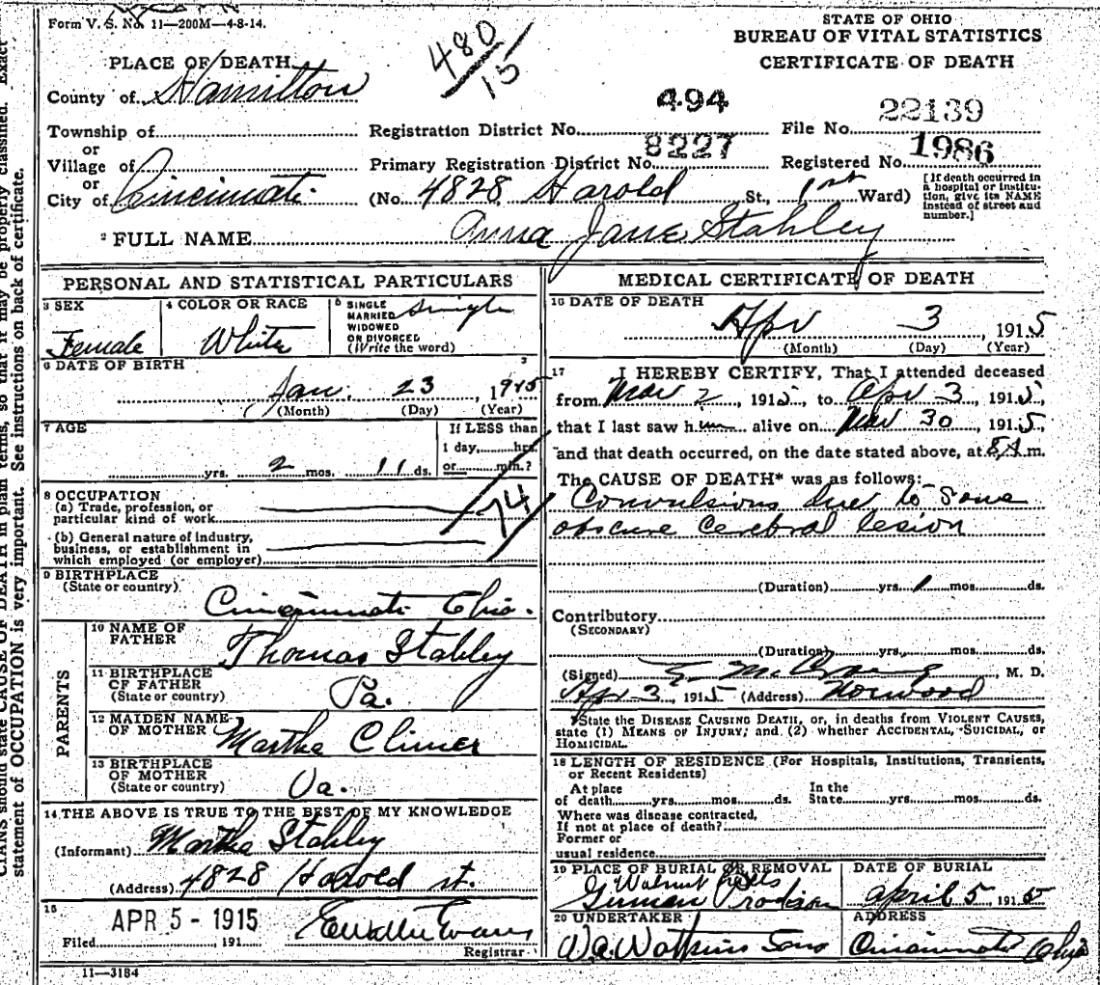 Form V. S. No. 11—200M—4-8-14.
480/15
STATE OF OHIO
BUREAU OF VITAL STATISTICS
CERTIFICATE OF DEATH
PLACE OF DEATH
County of Hamilton
Township of
or
Village of
or
City of Cincinnati
Registration District No. 494
File No. 22139
Primary Registration District No. 8227
Registered No. 1986
(No. 4828 Harold St., 1st Ward)
[If death occurred in a hospital or institution, give its NAME instead of street and number.]
2 FULL NAME Anna Jane Stahley
PERSONAL AND STATISTICAL PARTICULARS
3 SEX
Female
4 COLOR OR RACE
White
5 SINGLE
MARRIED
WIDOWED
OR DIVORCED
(Write the word)
Single
6 DATE OF BIRTH
Jan. 23, 1915
(Month) (Day) (Year)
7 AGE
yrs. 2 mos. 11 ds.
If LESS than
1 day, hrs.
or min.?
74
8 OCCUPATION
(a) Trade, profession, or
particular kind of work
(b) General nature of industry,
business, or establishment in
which employed (or employer)
9 BIRTHPLACE
(State or country)
Cincinnati Ohio.
PARENTS
10 NAME OF
FATHER
Thomas Stahley
11 BIRTHPLACE
OF FATHER
(State or country)
Pa.
12 MAIDEN NAME
OF MOTHER
Martha Climer
13 BIRTHPLACE
OF MOTHER
(State or country)
Va.
14 THE ABOVE IS TRUE TO THE BEST OF MY KNOWLEDGE
(Informant) Martha Stahley
(Address) 4828 Harold st.
15
Filed APR 5 - 1915 191
Evans
Registrar
11—3184
MEDICAL CERTIFICATE OF DEATH
16 DATE OF DEATH
Apr 3, 1915
(Month) (Day) (Year)
17 I HEREBY CERTIFY, That I attended deceased
from Mar 2, 1915, to Apr 3, 1915,
that I last saw h alive on Mar 30, 1915,
and that death occurred, on the date stated above, at 8 A.m.
The CAUSE OF DEATH* was as follows:
Convulsions due to some
obscure cerebral lesion
(Duration) yrs. 1 mos. ds.
Contributory
(SECONDARY)
(Duration) yrs. mos. ds.
(Signed) M. D.
Apr 3, 1915 (Address) Norwood
*State the DISEASE CAUSING DEATH, or, in deaths from VIOLENT CAUSES,
state (1) MEANS OF INJURY; and (2) whether ACCIDENTAL, SUICIDAL, or
HOMICIDAL.
18 LENGTH OF RESIDENCE (For Hospitals, Institutions, Transients,
or Recent Residents)
At place
of death yrs. mos. ds.
In the
State yrs. mos. ds.
Where was disease contracted,
If not at place of death?
Former or
usual residence
19 PLACE OF BURIAL OR REMOVAL
Walnut Hills
German
DATE OF BURIAL
April 5, 1915
20 UNDERTAKER
W.A. Watkins Sons
ADDRESS
Cincinnati Ohio
CIANS should state CAUSE OF DEATH in plain terms, so that it may be properly classified. Exact
statement of OCCUPATION is very important. See instructions on back of certificate.